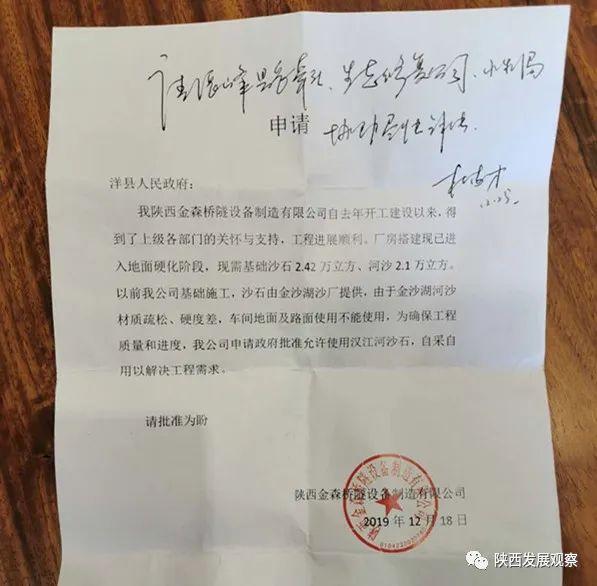 申请
洋县人民政府：
我陕西金森桥隧设备制造有限公司自去年开工建设以来，得
到了上级各部门的关怀与支持，工程进展顺利。厂房搭建现已进
入地面硬化阶段，现需基础沙石 2.42 万立方、河沙 2.1 万立方。
以前我公司基础施工，沙石由金沙湖沙厂提供，由于金沙湖河沙
材质疏松、硬度差，车间地面及路面使用不能使用，为确保工程
质量和进度，我公司申请政府批准允许使用汉江河沙石，自采自
用以解决工程需求。
请批准为盼
陕西金森桥隧设备制造有限公司
2019 年 12 月 18 日
陕西发展观察